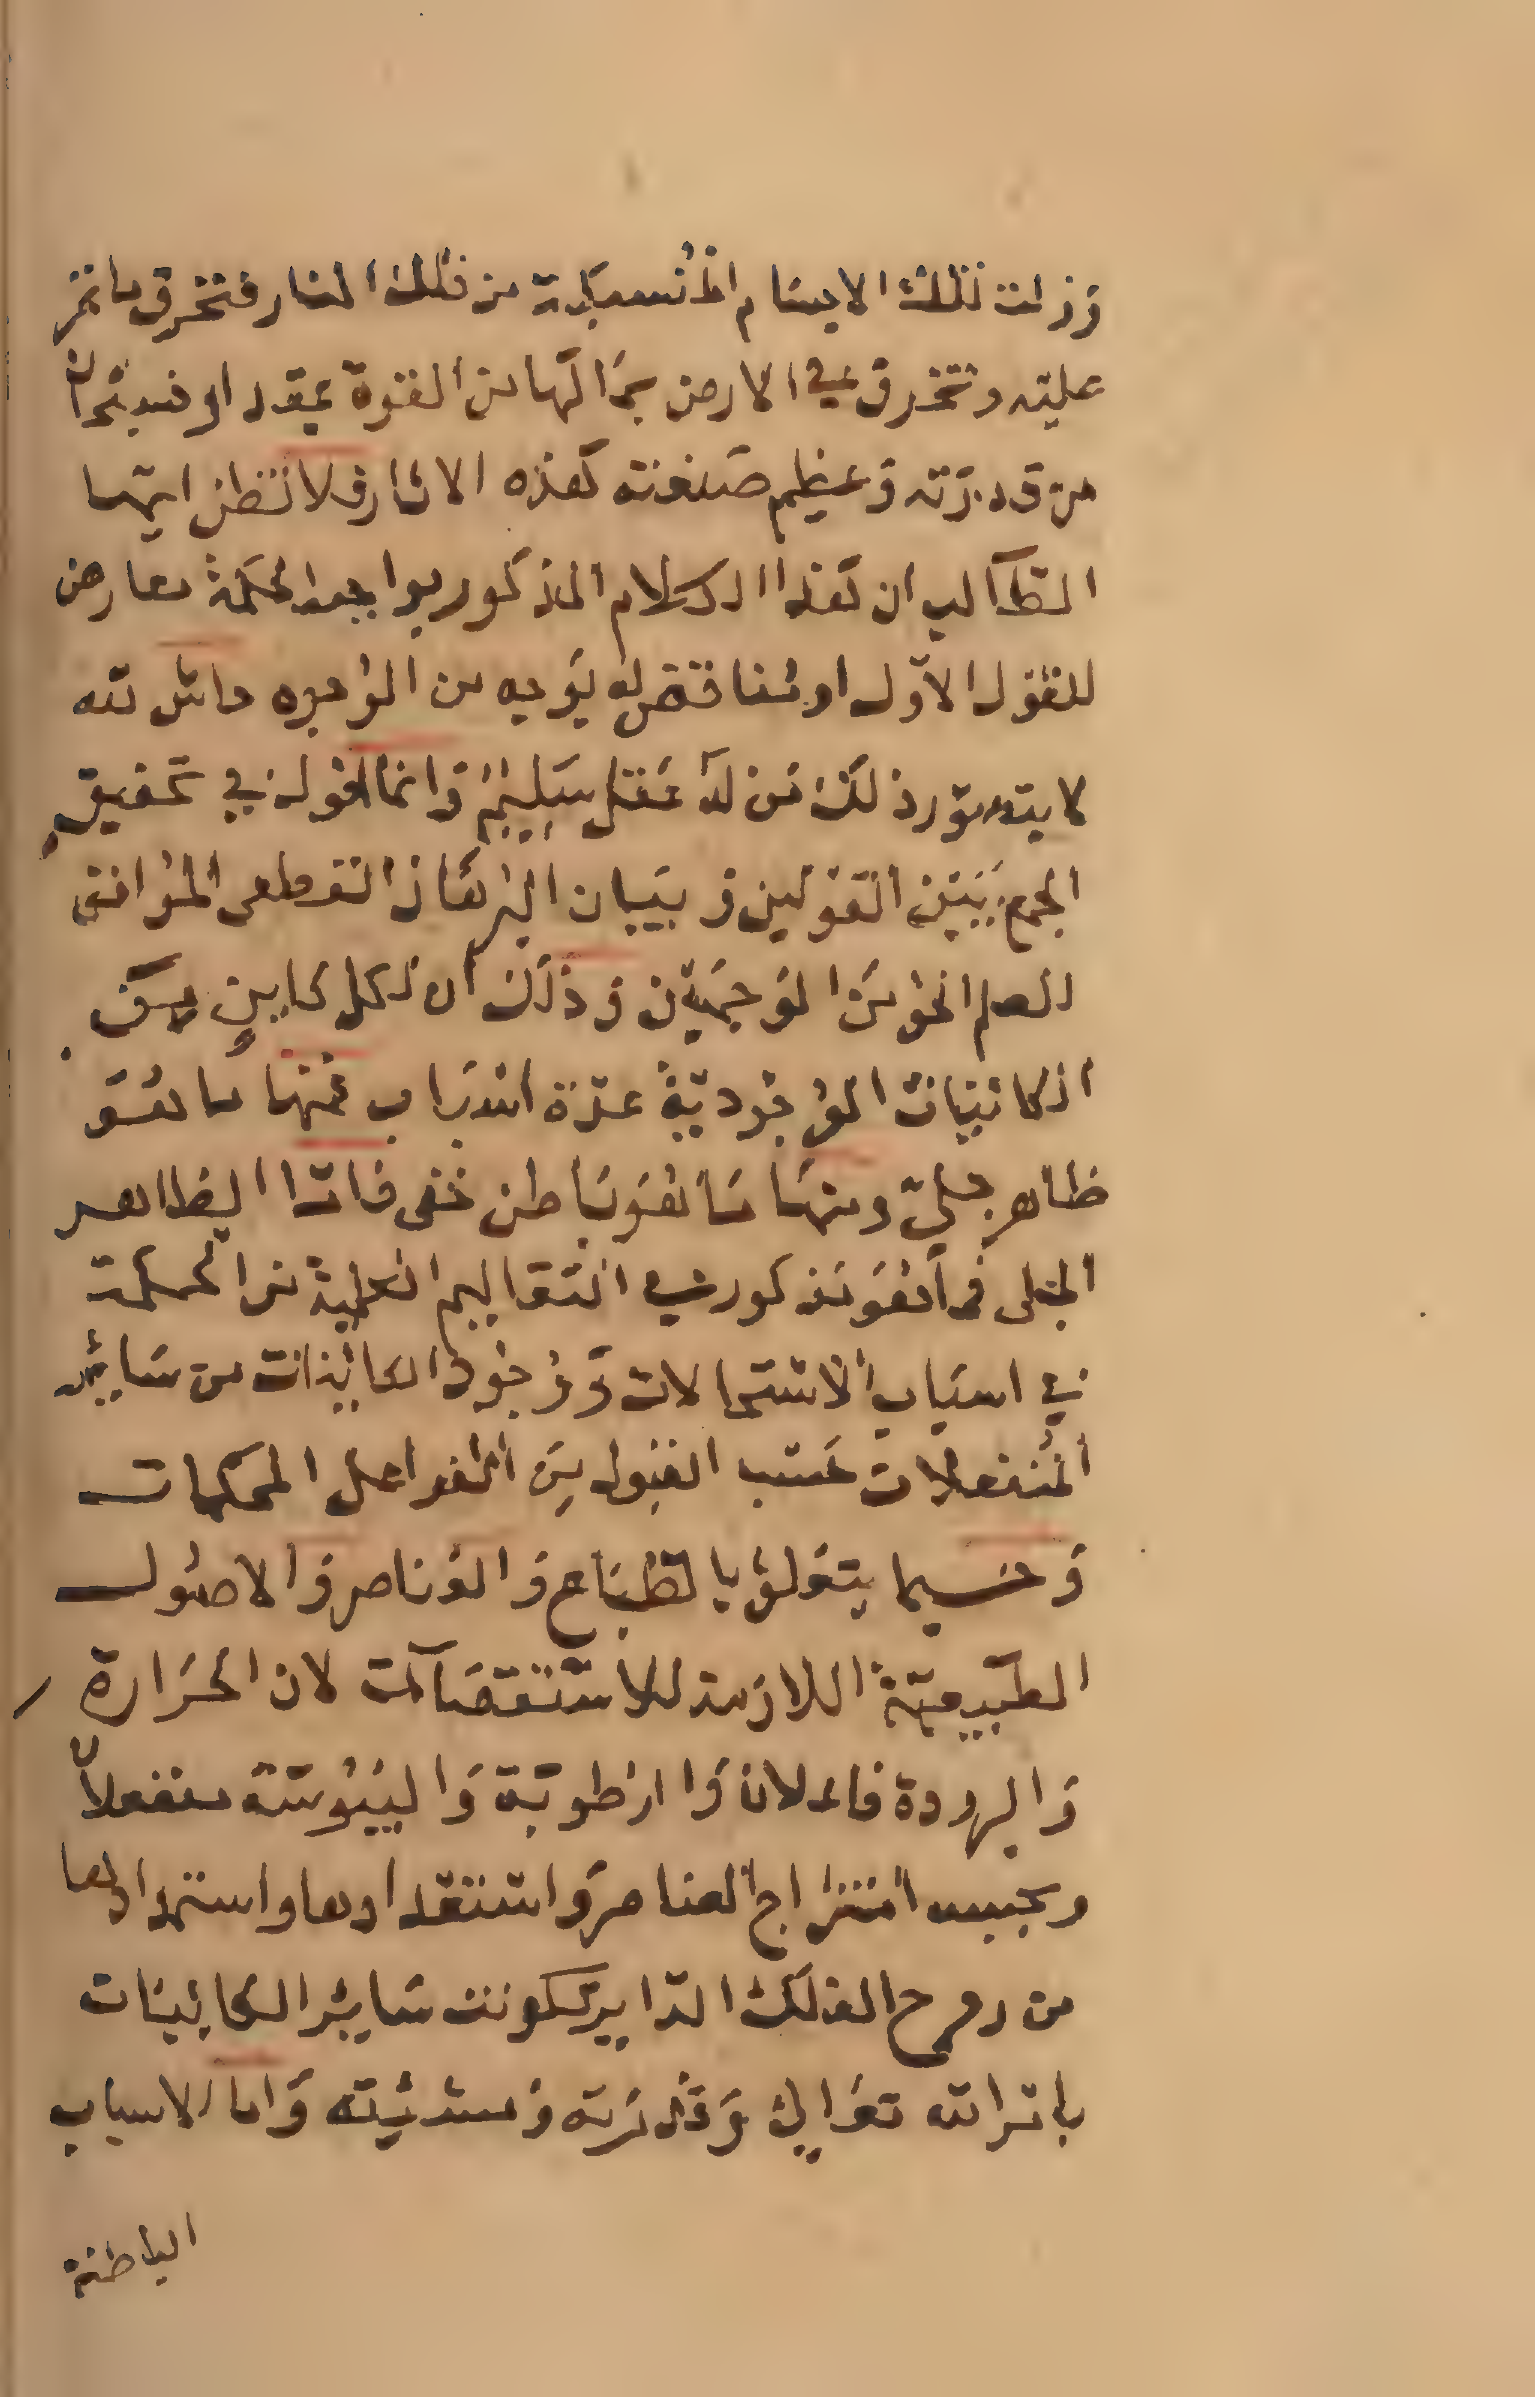 ونزلت تلك الاجسام المنسبكة من تلك النار فتخرق ما تمر
عليه وتخرق في الارض بما لها من القوة بقدر او فسبحان
من قدرته وعظيم صنعته هذه الاثار فلا تظن ايها
الطالب ان هذا الكلام المذكور بواجب الحكمة معارض
للقول الاول او مناقض له بوجه من الوجوه حاش لله
لا يتصور ذلك من له عقل سليم وانما القول في تحقيق
الجمع بين القولين وبيان البرهان القطعي الموافق
العلم الخواص الوجهين وذلك ان لكل كاين من
الكائنات الموجودية عدة اسباب فمنها ما هو
ظاهر جلي ومنها ما هو باطن خفي فاما الظاهر
الجلي فما هو مذكور في التعاليم العلمية من الحكمة
في اسباب الاستحالات ووجود الكائنات من ساير
المنفعلات بحسب القبول من الفواعل المحكمات
وفيما يتعلق بالطباع والعناصر والاصول
الطبيعية اللازمة للاستقصات لان الحرارة
والبرودة فاعلان والرطوبة واليبوسة منفعلان
وبحسب امتزاج العناصر واستعدادها واستمدادها
من روح الفلك الداير تكونت ساير الكاينات
بامر الله تعالى وقدرته ومشيئته واما الاسباب
الباطنة